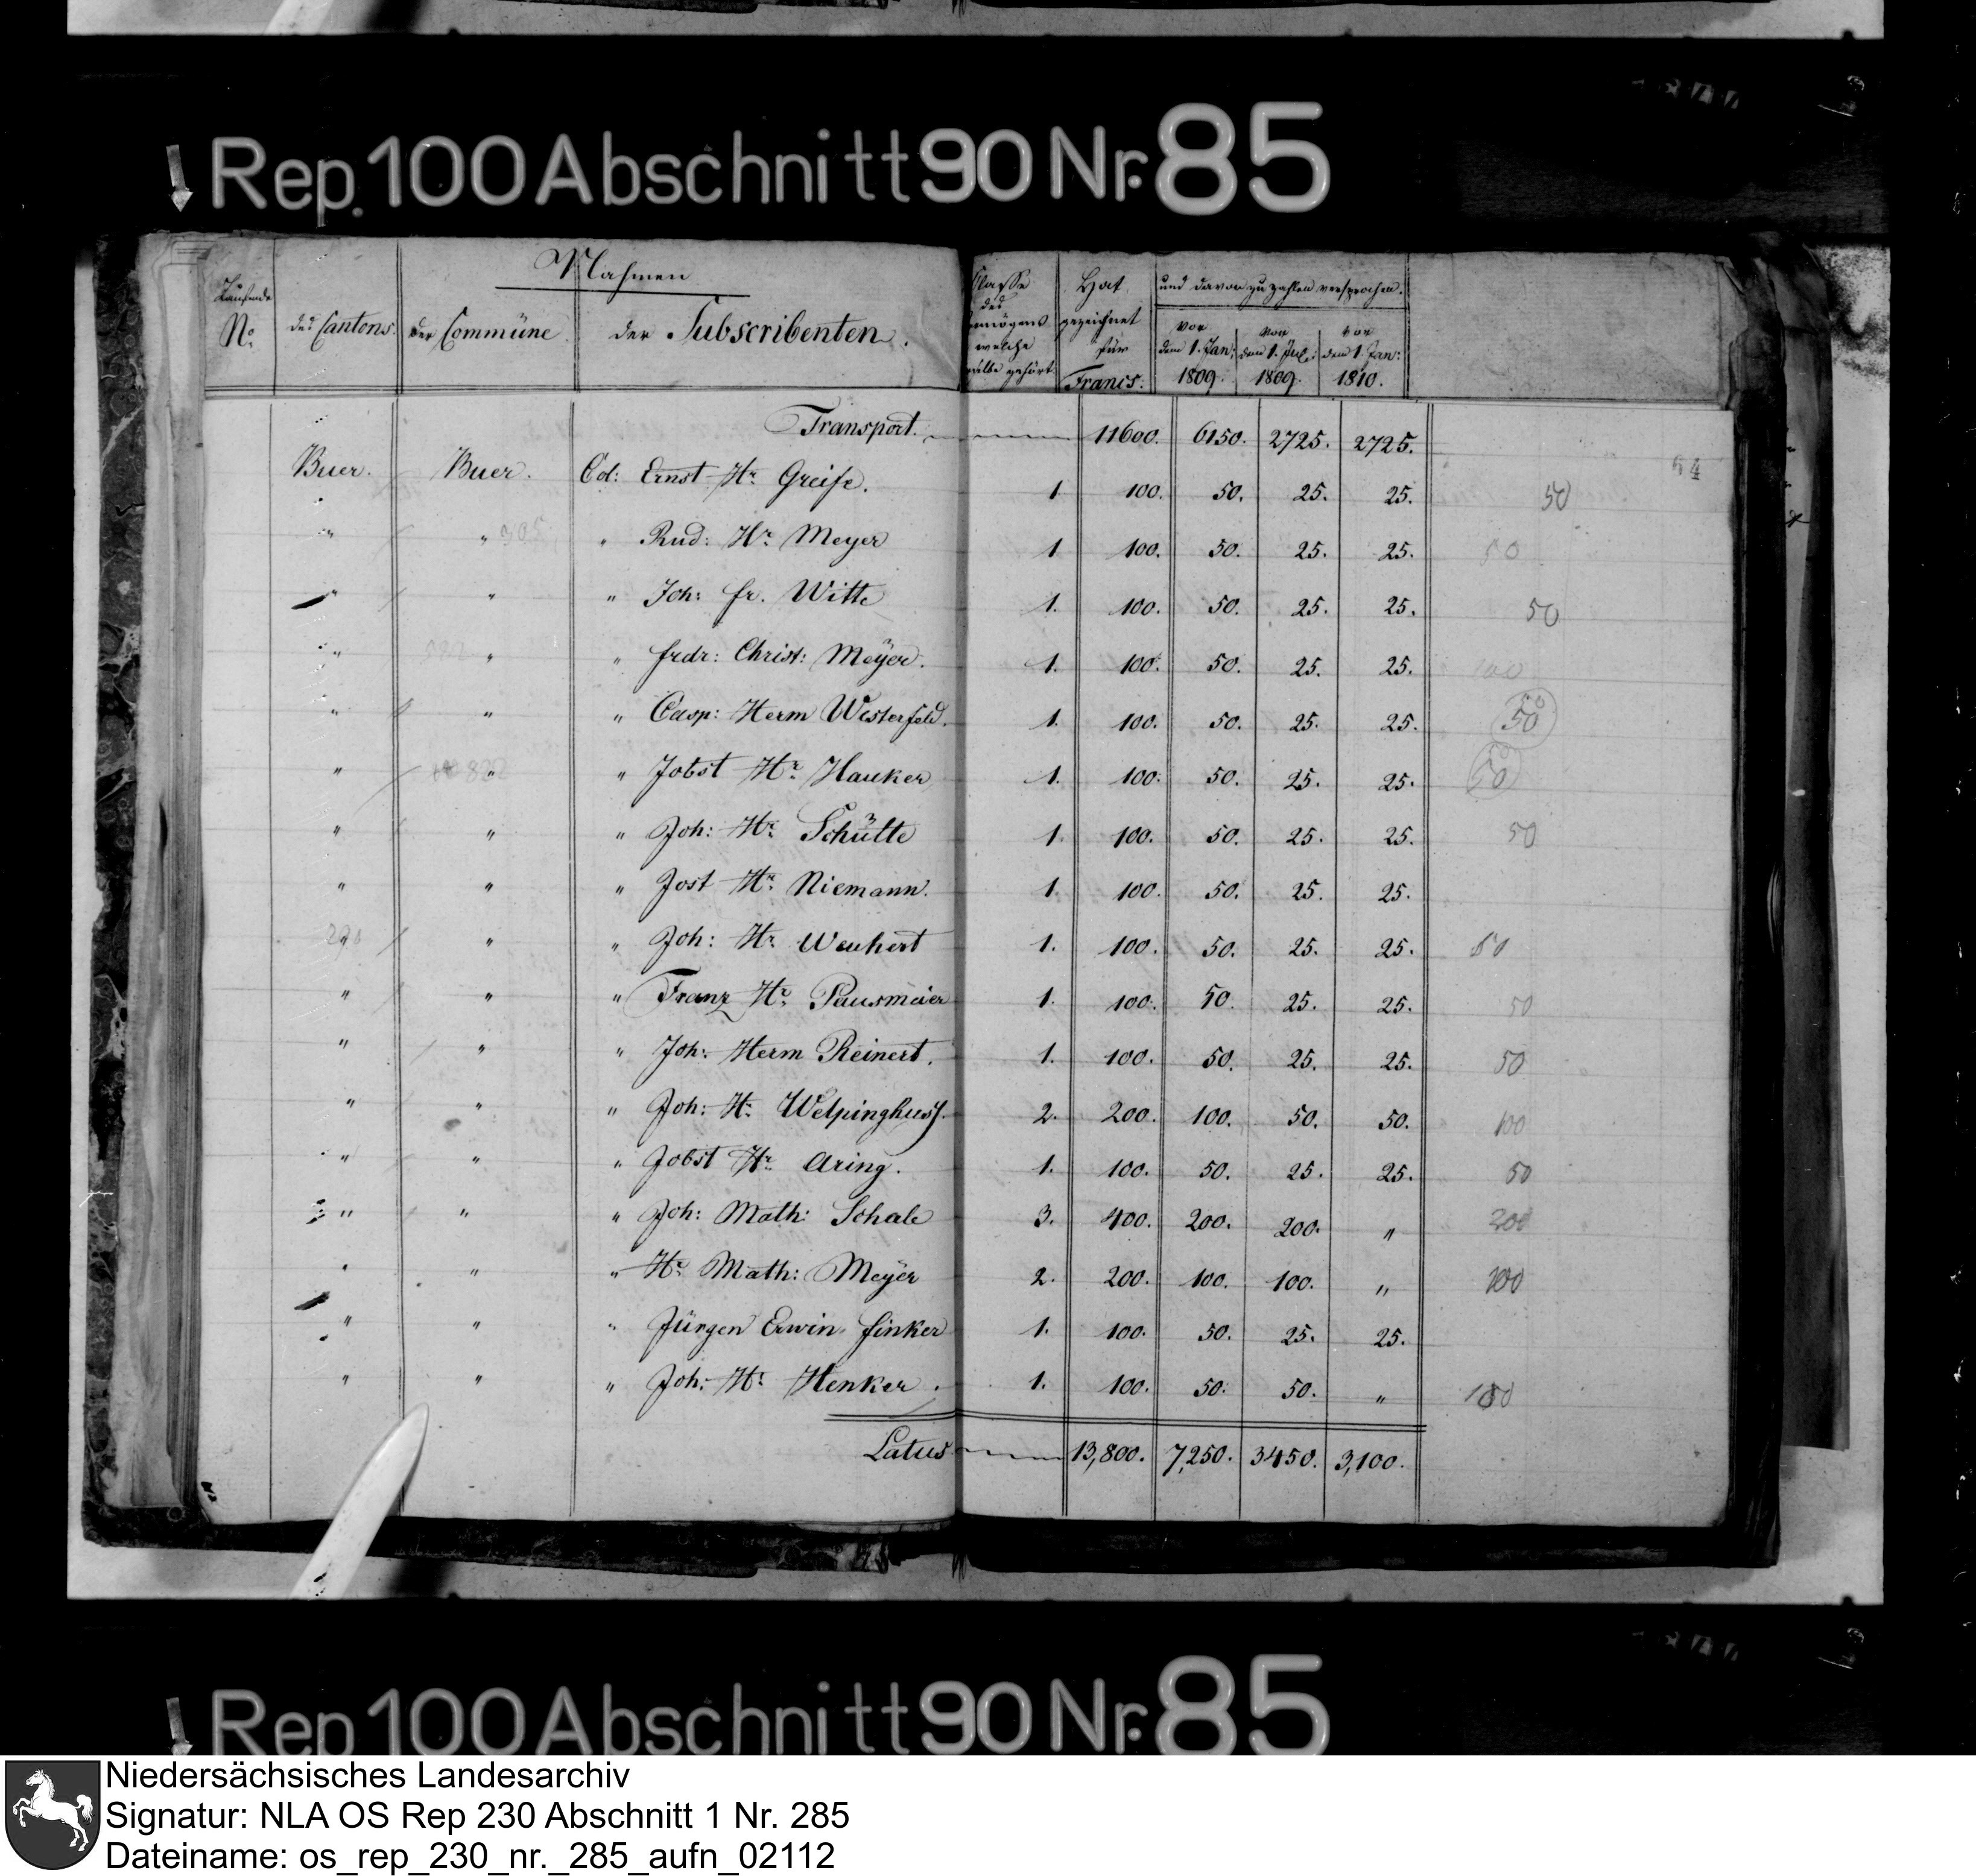 Rep. 100 Abschnitt 90 Nr. 85
Laufende No.
Nahmen
des Cantons.
der Commüne
der Subscribenten.
Classe des Vermögens welche derselbe gehört
Hat gezeichnet für Francs.
und davon zu zahlen versprochen.
vor dem 1. Jan: 1809.
vor dem 1. Jul: 1809.
vor dem 1. Jan: 1810.
54
Transport. 11600. 6150. 2725. 2725.
Buer. Buer. Col: Ernst Hr. Greife. 1 100. 50. 25. 25. 50
" " 305 " Rud: Hr. Meyer 1 100. 50. 25. 25. 50
" " " Joh: fr. Witte 1. 100. 50. 25. 25. 50
" " " frdr: Christ: Meÿer. 1. 100. 50. 25. 25. 100
" " " Casp: Herm Westerfeld. 1. 100. 50. 25. 25. 50
" " " Jobst Hr. Hauker 1. 100. 50. 25. 25. 50
" " " Joh: Hr. Schütte 1. 100. 50. 25. 25. 50
" " " Jost Hr. Niemann. 1. 100. 50. 25. 25.
" " " Joh: Hr. 1. 100. 50. 25. 25. 50
" " " Franz Hr. Pausmeier 1. 100. 50. 25. 25. 50
" " " Joh: Herm Reinert. 1. 100. 50. 25. 25. 50
" " " Joh: Hr. 2. 200. 100. 50. 50. 100
" " " Jobst Hr. Aring. 1. 100. 50. 25. 25. 50
" " " Joh: Math: Schale 3. 400. 200. 200. " 200
" " " Hr. Math: Meÿer 2. 200. 100. 100. " 200
" " " Jürgen Erwin finker 1. 100. 50. 25. 25.
" " " Joh: Hr. Henker. 1. 100. 50. 50. "
Latus 13,800. 7,250. 3450. 3,100.
Rep 100 Abschnitt 90 Nr. 85
Niedersächsisches Landesarchiv
Signatur: NLA OS Rep 230 Abschnitt 1 Nr. 285
Dateiname: os_rep_230_nr._285_aufn_02112